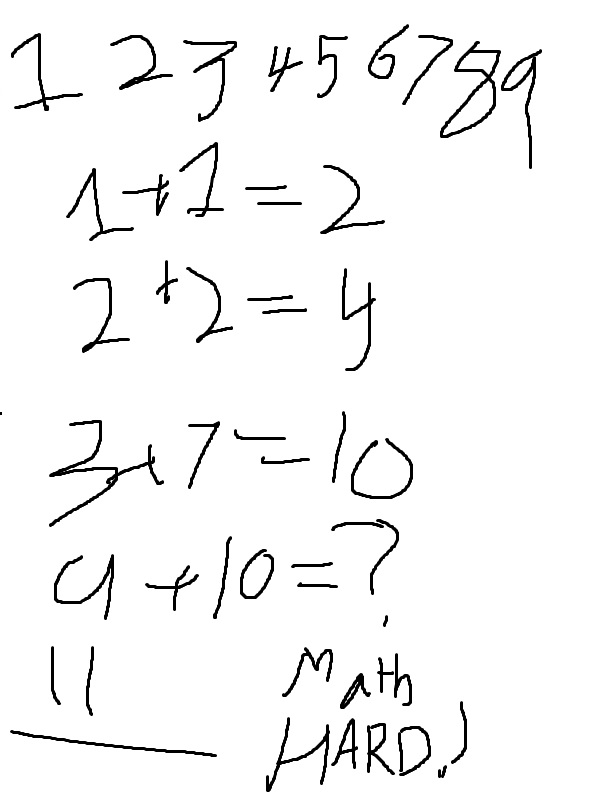 1 2 3 4 5 6 7 8 9
1+1=2
2+2=4
3+7=10
9+10=?
11
Math
HARD!